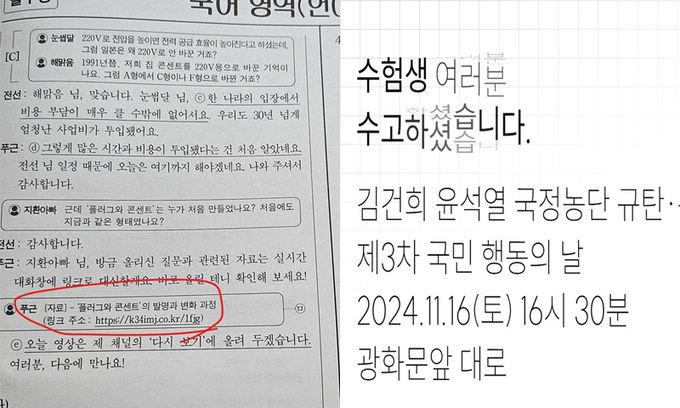 국어 영역(언
[C]
눈썹달 220V로 전압을 높이면 전력 공급 효율이 높아진다고 하셨는데,
그럼 일본은 왜 220V로 안 바꾼 거죠?
해맑음 1991년쯤, 저희 집 콘센트를 220V용으로 바꾼 기억이
나요. 그럼 A형에서 C형이나 F형으로 바뀐 거죠?
전선 : 해맑음 님, 맞습니다. 눈썹달 님, ⓒ한 나라의 입장에서
비용 부담이 매우 클 수밖에 없어서요. 우리도 30년 넘게
엄청난 사업비가 투입됐어요.
푸근 : ⓓ그렇게 많은 시간과 비용이 투입됐다는 건 처음 알았네요.
전선 님 일정 때문에 오늘은 여기까지 해야겠네요. 나와 주셔서
감사합니다.
지환아빠 근데 '플러그와 콘센트'는 누가 처음 만들었나요? 처음에도
지금과 같은 형태였나요?
전선 : 감사합니다.
푸근 : 지환아빠 님, 방금 올리신 질문과 관련된 자료는 실시간
대화창에 링크로 대신할게요. 바로 올릴 테니 확인해 보세요!
푸근 [자료] - '플러그와 콘센트'의 발명과 변화 과정
(링크 주소 : https://k34imj.co.kr/1fjg)
㉤
ⓔ오늘 영상은 제 채널의 '다시 보기'에 올려 두겠습니다.
여러분, 다음에 만나요!
수험생 여러분
수고하셨습니다.
김건희 윤석열 국정농단 규탄·
제3차 국민 행동의 날
2024.11.16(토) 16시 30분
광화문앞 대로